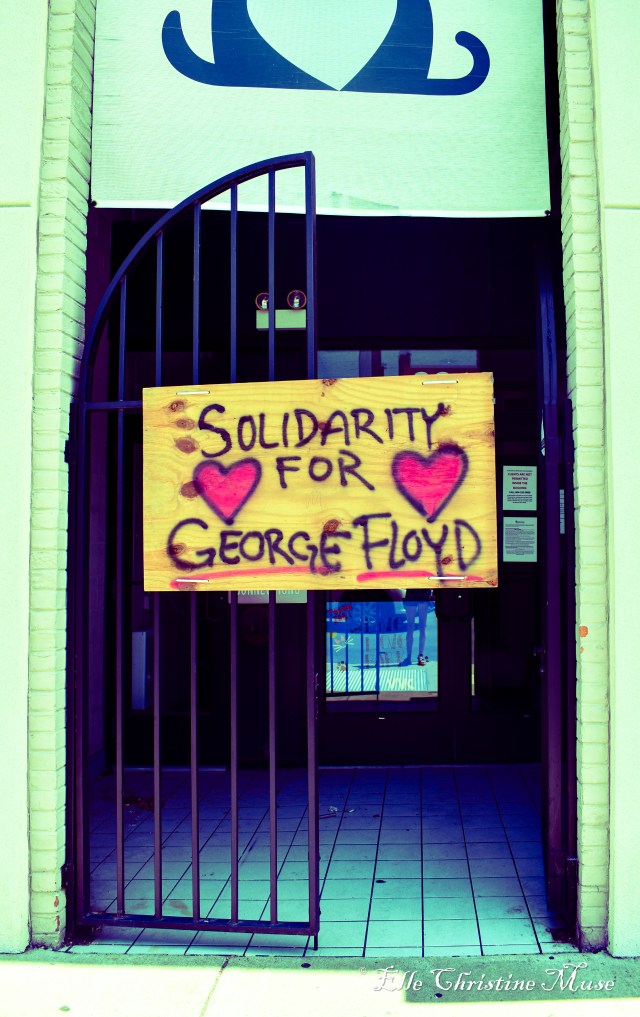 SOLIDARITY
FOR
GEORGE FLOYD
© Elle Christine Muse